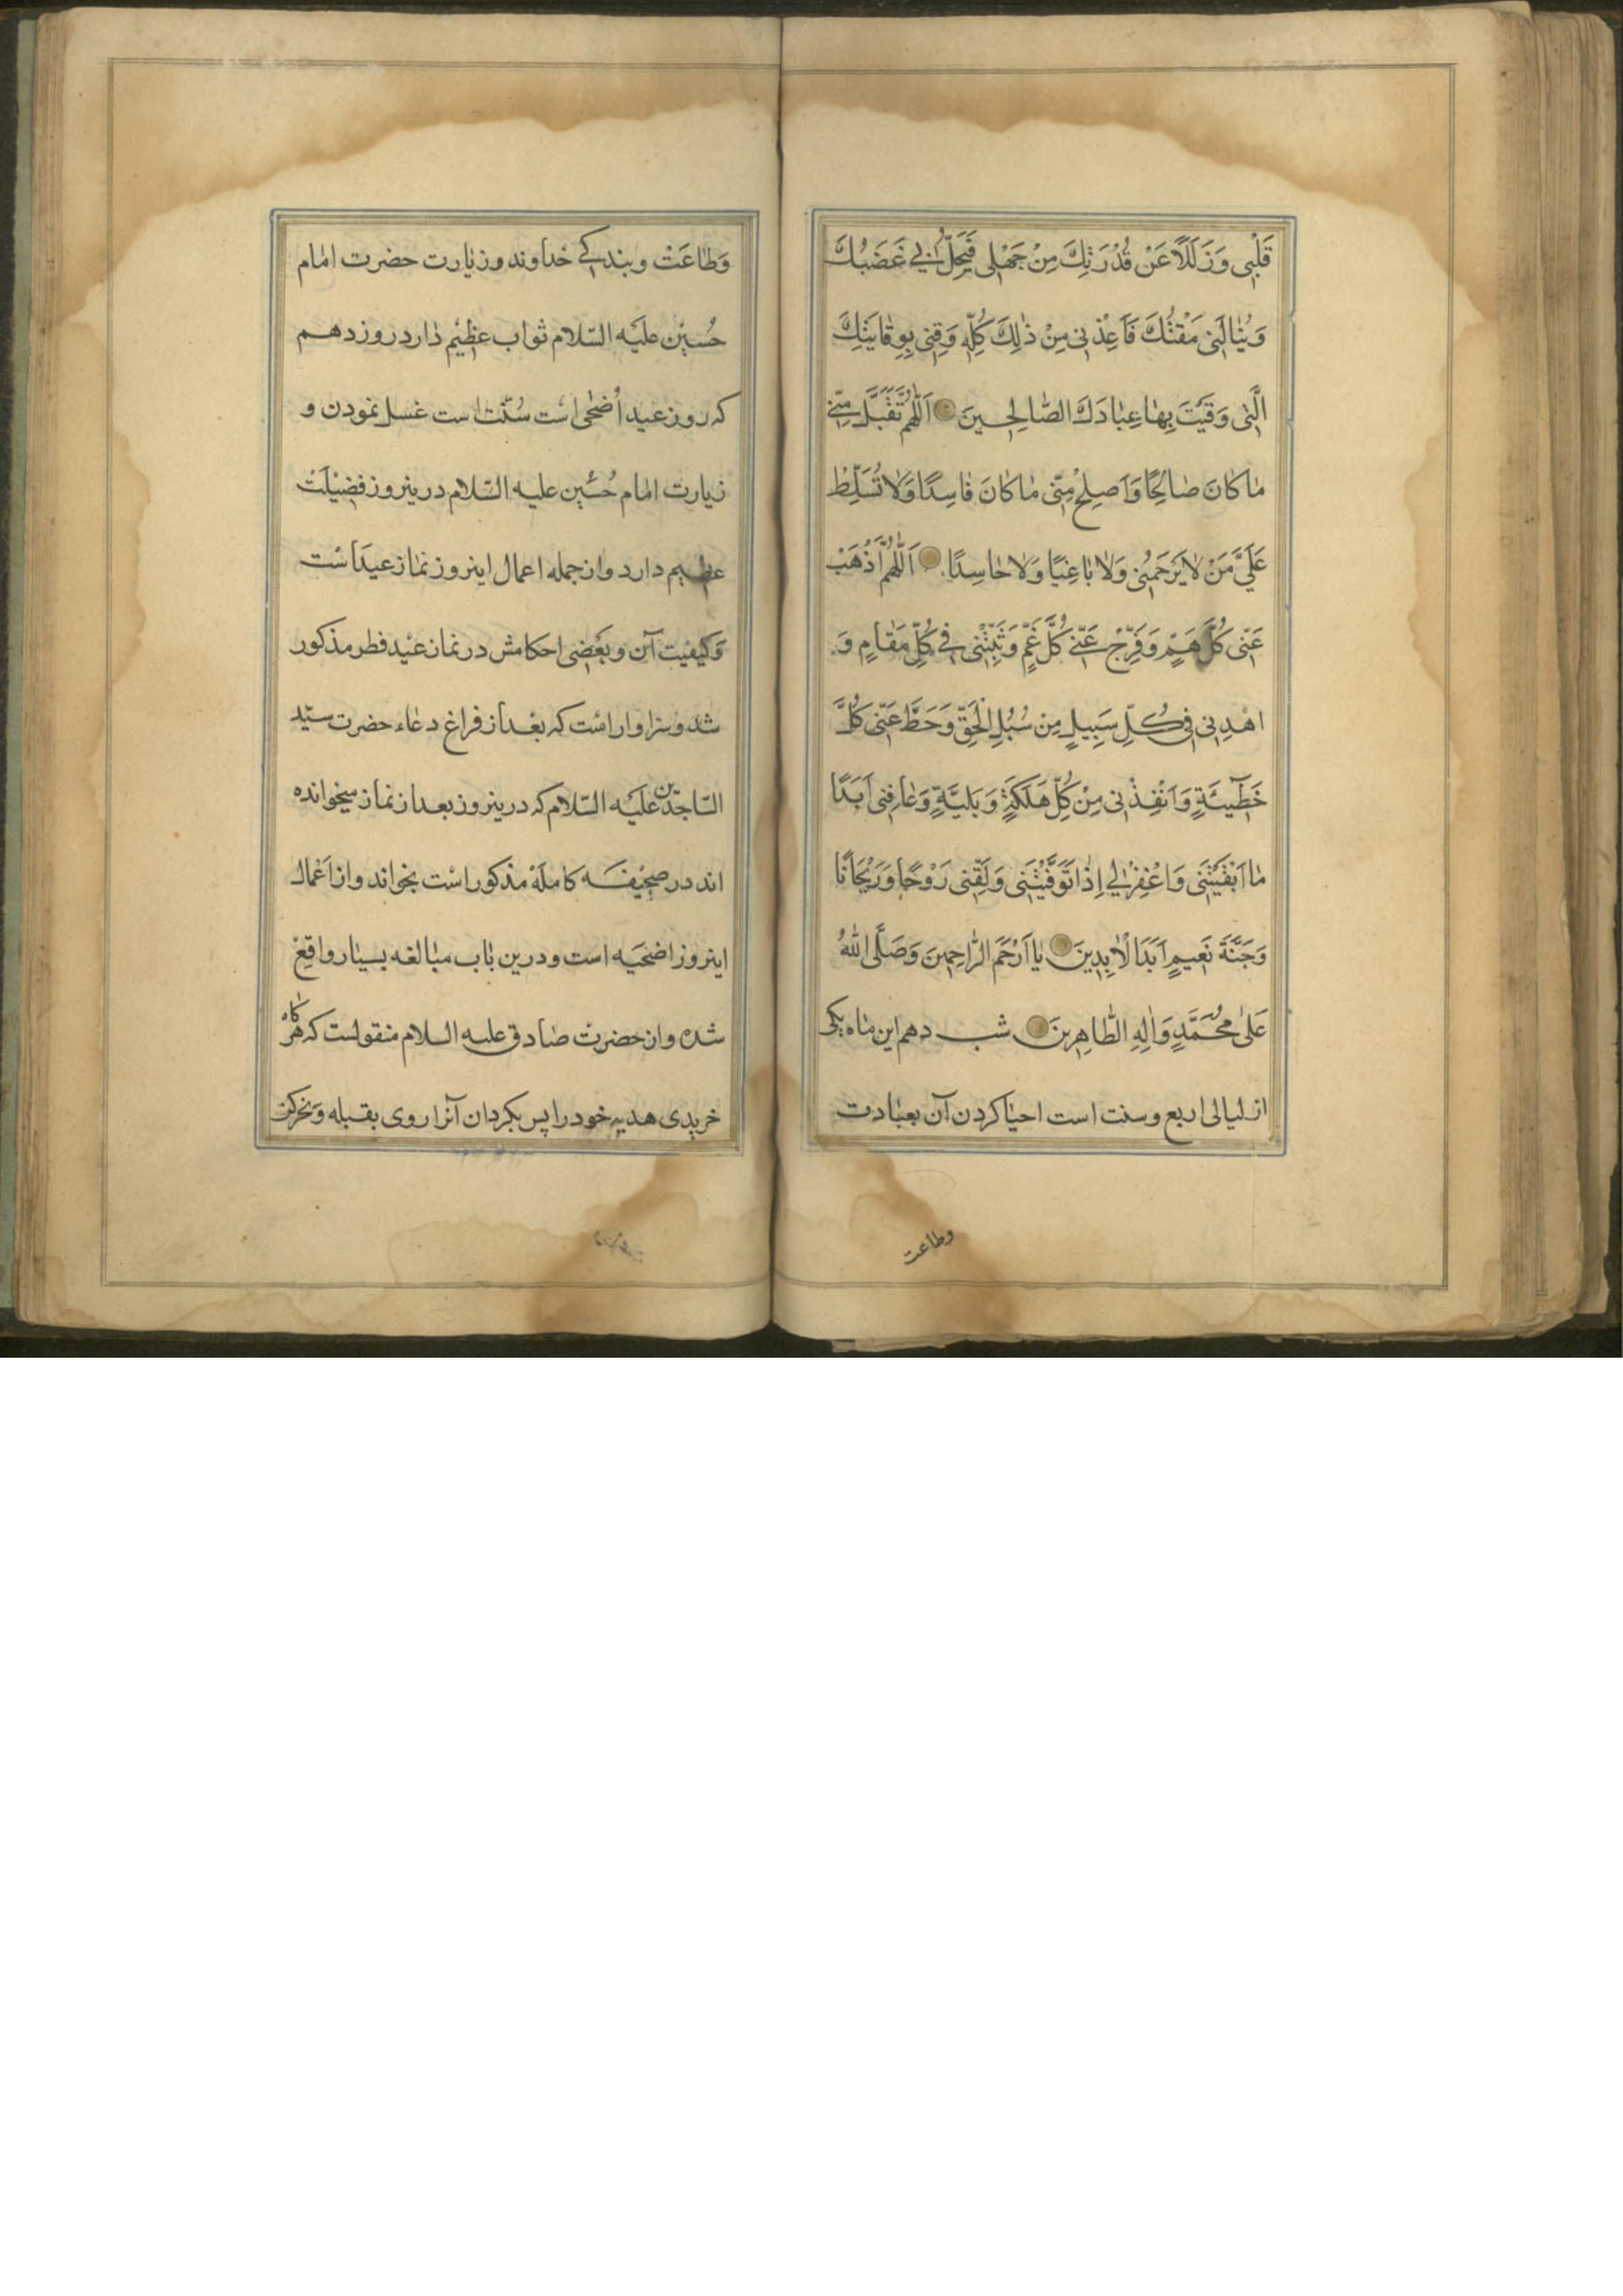 قَلْبِي وَزَلَلًا عَنْ قُدْرَتِكَ مِنْ جَهْلِي فَيَحِلُّ بِي غَضَبُكَ
وَيُنَالَنِي مَقْتُكَ فَاَعِذْنِي مِنْ ذٰلِكَ كُلِّهِ وَقِنِي بِوِقَايَتِكَ
الَّتِي وَقَيْتَ بِهَا عِبَادَكَ الصَّالِحِينَ اَللّٰهُمَّ تَقَبَّلْ مِنِّي
مَا كَانَ صَالِحًا وَاَصْلِحْ مِنِّي مَا كَانَ فَاسِدًا وَلَا تُسَلِّطْ
عَلَيَّ مَنْ لَا يَرْحَمُنِي وَلَا بَاغِيًا وَلَا حَاسِدًا اَللّٰهُمَّ اَذْهِبْ
عَنِّي كُلَّ هَمٍّ وَفَرِّجْ عَنِّي كُلَّ غَمٍّ وَثَبِّتْنِي فِي كُلِّ مَقَامٍ وَ
اهْدِنِي فِي كُلِّ سَبِيلٍ مِنْ سُبُلِ الْحَقِّ وَحَطَّ عَنِّي كُلَّ
خَطِيئَةٍ وَاَنْقِذْنِي مِنْ كُلِّ هَلَكَةٍ وَبَلِيَّةٍ وَعَافِنِي اَبَدًا
مَا اَبْقَيْتَنِي وَاغْفِرْ لِي اِذَا تَوَفَّيْتَنِي وَلَقِّنِي رَوْحًا وَرَيْحَانًا
وَجَنَّةَ نَعِيمٍ اَبَدَ الْاٰبِدِينَ يَا اَرْحَمَ الرَّاحِمِينَ وَصَلَّى اللّٰهُ
عَلَى مُحَمَّدٍ وَاٰلِهِ الطَّاهِرِينَ شب دهم این ماه یکی
از لیالی اربع و سنت است احیا کردن آن بعبادت
وطاعت
وَطاعَت و بندگی خداوند و زیارت حضرت امام
حُسین علیه السّلام ثواب عظیم دارد روز دهم
که روز عید أضحی است سُنّت است غسل نمودن و
زیارت امام حُسین علیه السّلام درینروز فضیلت
عظیم دارد و از جمله اعمال اینروز نماز عید است
وَکیفیت آن و بَعضی احکامش در نماز عید فطر مذکور
شد و سزاوار است که بعد از فراغ دعاء حضرت سیّد
السّاجدین علیه السّلام که درینروز بعد از نماز میخوانده
اند در صحیفه کامله مذکور است بخواند و از اَعمال
اینروز اضحیَه است و درین باب مبالغه بسیار واقع
شده و از حضرت صادق علیه السلام منقولست که هرگاه
خریدی هدیه خود را پس بگردان آنرا روی بقبله وَنحر کن